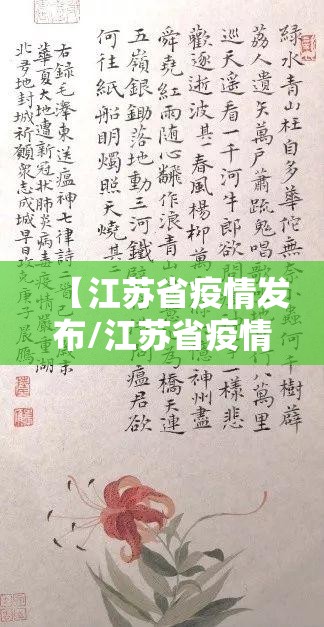 綠水青山枉自多華佗無奈小蟲何千樹薜
荔人遺矢萬戶蕭疏鬼唱歌八萬里
巡天遙看一千河牛郎欲問一樣悲
歡逐逝波其一春風楊柳萬億神州盡
舜堯紅雨隨心翻作浪青山為橋天連
五嶺銀鋤落地動三河鐵臂問瘟君欲
何往紙船明燭照天燒其二
右録毛澤東送瘟神七律詩二首己亥末
華夏大地遭新冠狀肺炎病毒疫情嚴重湖
北多地封城祈願衆志成城早攻克庚子晨鵬
【江苏省疫情发
布/江苏省疫情